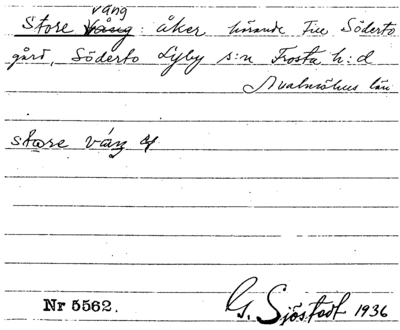 vång
Store vång: åker hörande till Söderto
gård, Söderto Lyby s:n Frosta h:d
Malmöhus län
store váŋ
Nr 5562.
G. Sjöstedt 1936